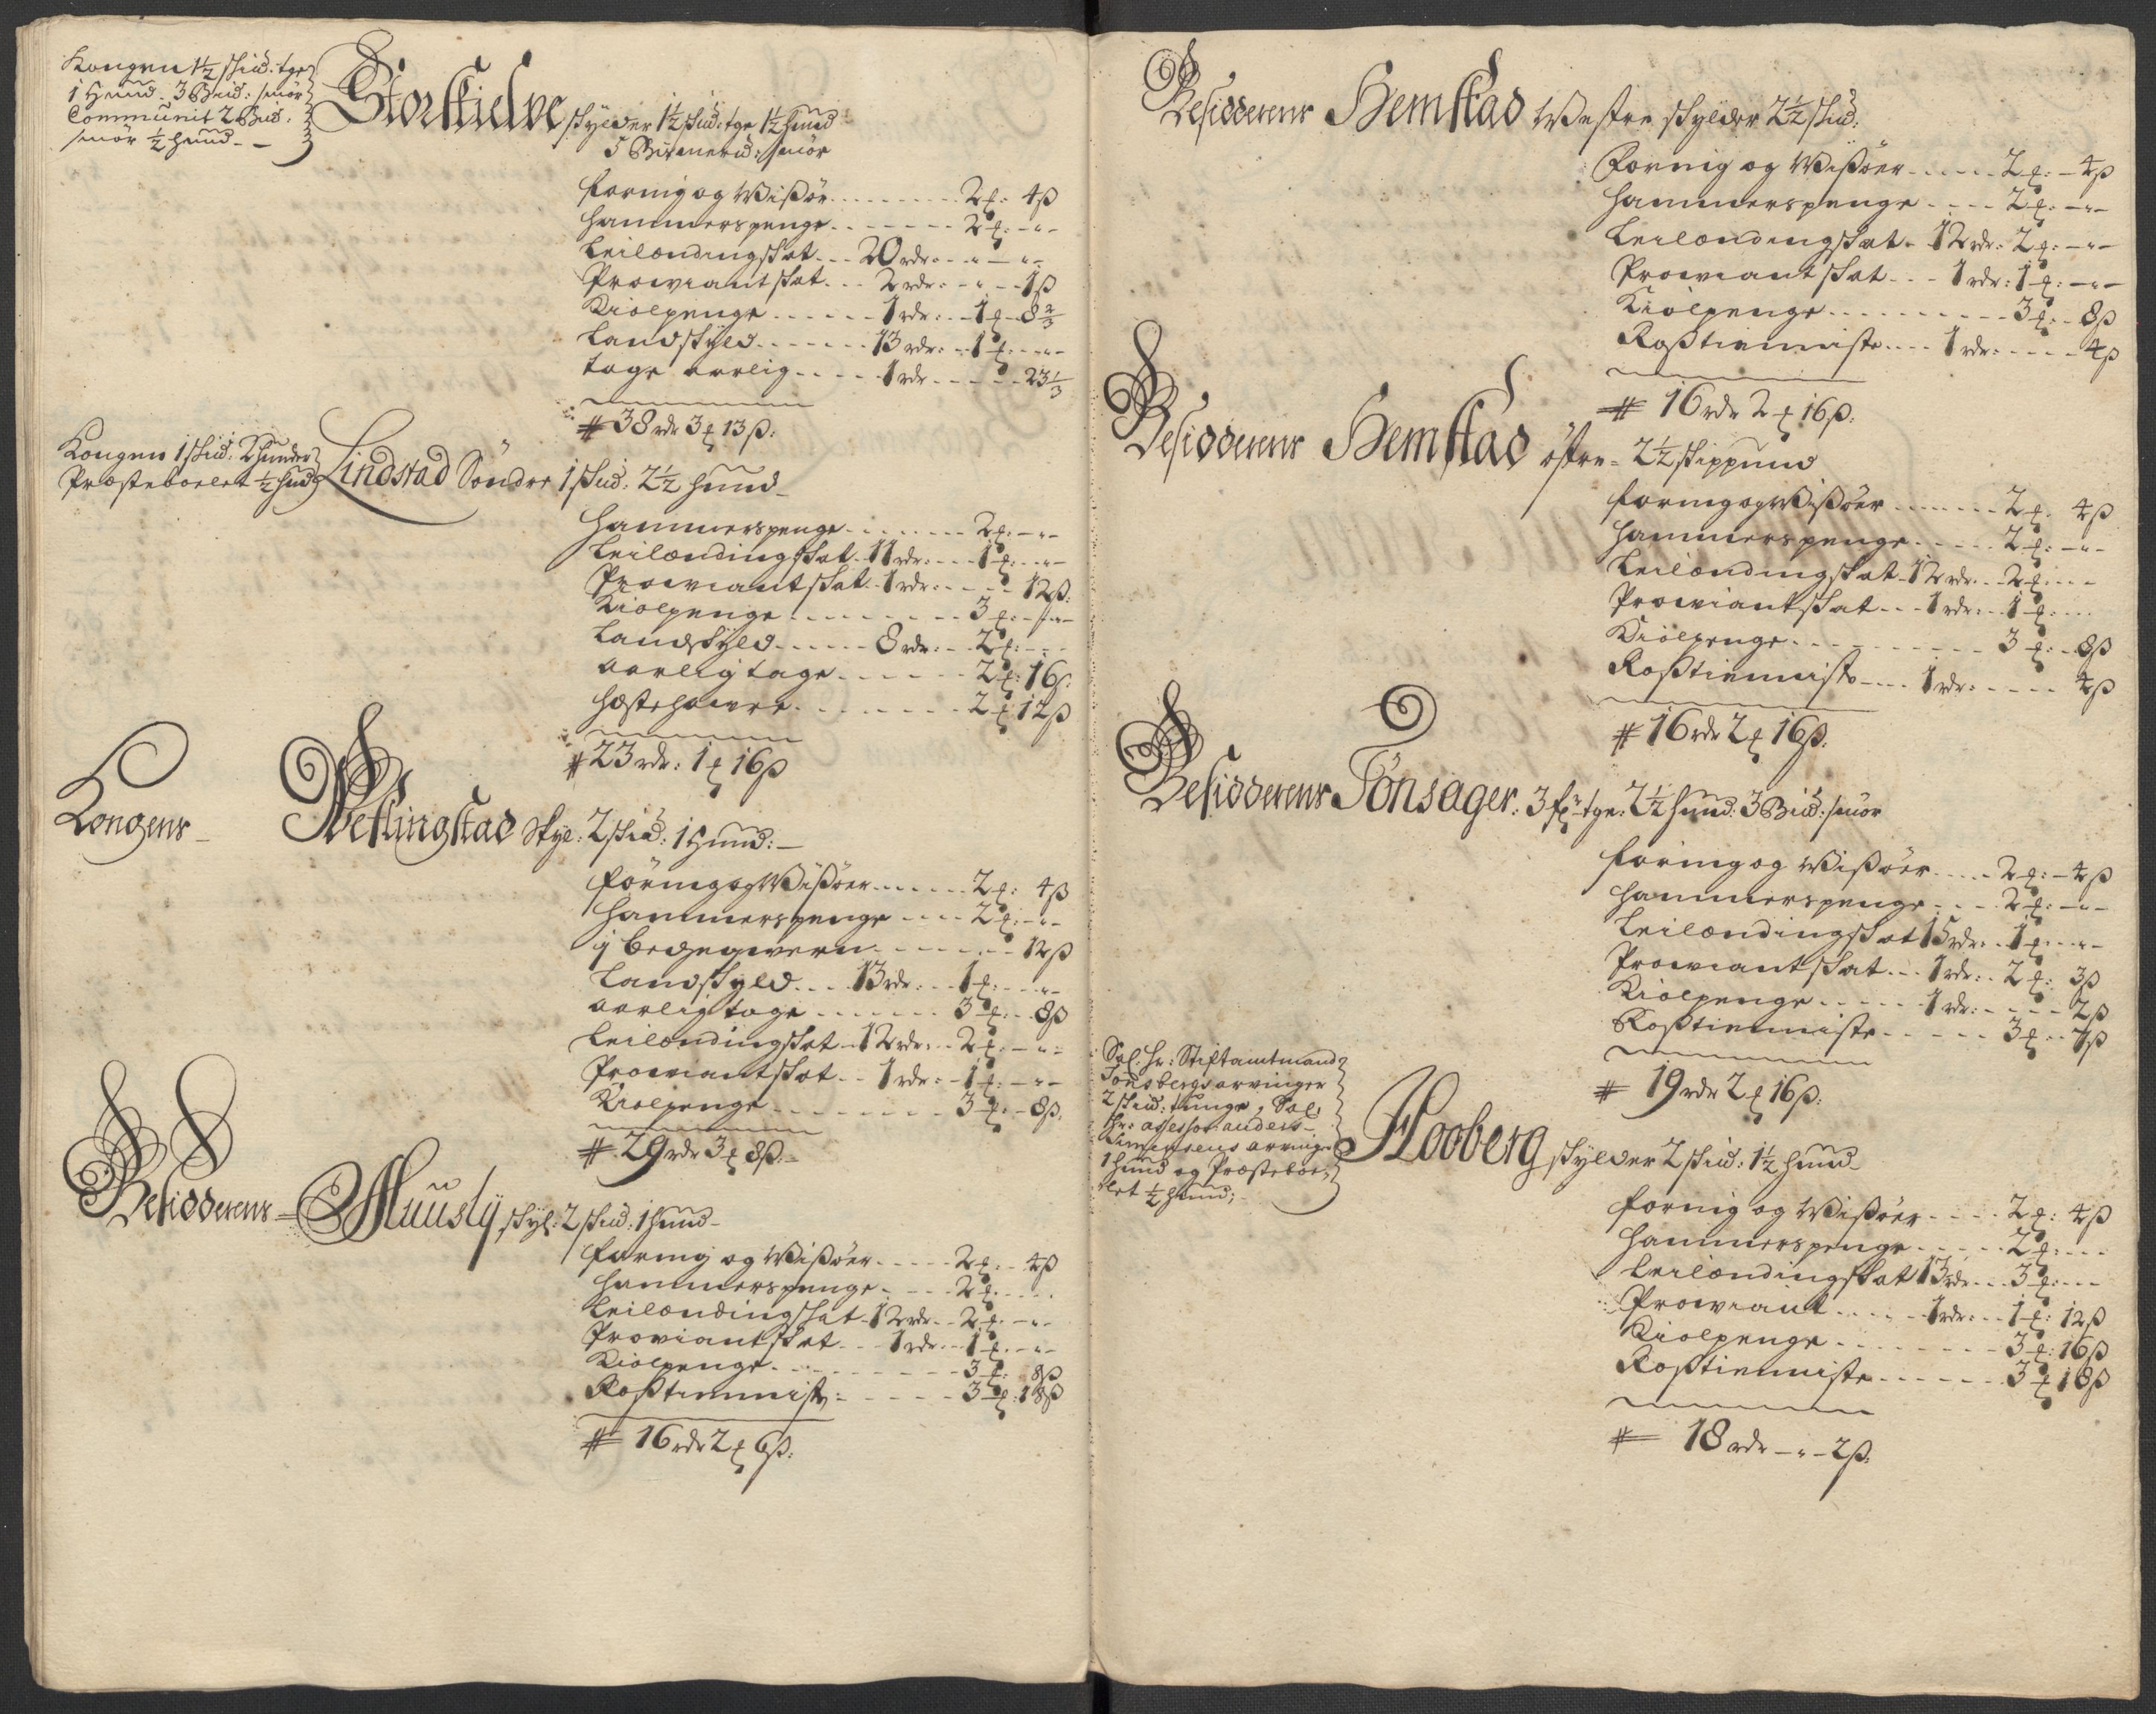 Kongen 1½ skud: tge
1 Hund. 3 Bud: smör
Communit 2 Bud:
smör ½ hund
Storskielve skylder 1½ skud: tge 1½ hund
5 Bismerud: smör
foring og Wißör 2 ₰: 4 ß
hammerspenge 2 ₰: - " -
Leilændingskat 20 rdr: - " - " -
Prowiantskat 2 rdr: - " - 1 ß
Kiølpenge 1 rdr: 1 ₰ 8⅔
Landskyld 13 rdr: 1 ₰: - " -
tage aarlig 1 rdr 23⅓
# 38 rdr 3 ₰ 13 ß:
Kongen 1 skud: 2 hunder
Præsteboelet ½ hud
Lindstad Söndre 1 skud: 2½ hund
hammerspenge 2 ₰: - " -
Leilændingskat 11 rdr: 1 ₰: - " -
Prowiantskat 1 rdr: 12 ß:
Kiolpenge 3 ₰: - " -
Landskyld 8 rdr: 2 ₰:
aarlig tage 2 ₰: 16 ß:
hæstehaure 2 ₰ 12 ß
# 23 rdr: 1 ₰ 16 ß
Kongens
Weflingstad Skyl: 2 skud: 1 Hund:
föring og Wißöer 2 ₰: 4 ß
hammerspenge 2 ₰: - " -
j begegwern 12 ß
Landskyld 13 rdr: 1 ₰: - " -
aarlig tage 3 ₰: 8 ß
Leilændingskat 12 rdr: 2 ₰: - " -
Prowiantskat 1 rdr: 1 ₰: - " -
Kiolpenge 3 ₰: 8 ß:
# 29 rdr 3 ₰ 8 ß:
Besidderens Muusly skyl: 2 skud: 1 hund
foring og Wißöer 2 ₰: 4 ß
hammerspenge 2 ₰:
Leilændingskat 12 rdr 2 ₰: - " -
Prowiantskat 1 rdr 1 ₰: - " -
Kiölpenge 3 ₰: 8 ß
Roßtienniste: 3 ₰: 18 ß
# 16 rdr 2 ₰ 6 ß:
Besidderens Hemstad Westre skylder 2½ skud:
Foring og Wißöer 2 ₰: 4 ß
hammerspenge 2 ₰: - " -
Leilændingskat 12 rdr: 2 ₰: - " -
Prowiantskat 1 rdr: 1 ₰: - " -
Kiölpenge 3 ₰: 8 ß
Roßtienniste 1 rdr: 4 ß
# 16 rdr 2 ₰ 16 ß:
Besidderens Hemstad östre 2½ skippund
foring og Wißöer 2 ₰: 4 ß
hammerspenge 2 ₰: - " -
Leilændingskat 12 rdr: 2 ₰:
Prowiantskat 1 rdr: 1 ₰:
Kiölpenge 3 ₰: 8 ß
Roßtienniste 1 rdr: 4 ß
# 16 rdr 2 ₰ 16 ß:
Besidderens Tönsager: 3 fr: tge: 2½ hund: 3 Bud: smör
foring og Wißöer 2 ₰: 4 ß
hammerspenge 2 ₰: - " -
Leilændingskat 15 rdr: 1 ₰: - " -
Prowiantskat 1 rdr: 2 ₰: 3 ß
Kiölpenge 1 rdr: 2 ß
Roßtienniste 3 ₰: 7 ß
# 19 rdr 2 ₰ 16 ß:
Sal: Hr: Stiftamtmand
Tonsbergs arvinger
2 skud: tunge, Sal:
Hr: assessor anders
Simensens arvinger
1 hund og Præsteboe-
let ½ hund:
Hooberg skylder 2 skud: 1½ hund
foring og Wißöer 2 ₰: 4 ß
hammerspenge 2 ₰:
Leilændingskat 13 rdr 3 ₰:
Prowiant 1 rdr: 1 ₰: 12 ß
Kiölpenge 3 ₰: 16 ß
Roßtienniste 3 ₰ 18 ß
# 18 rdr - " - 2 ß: